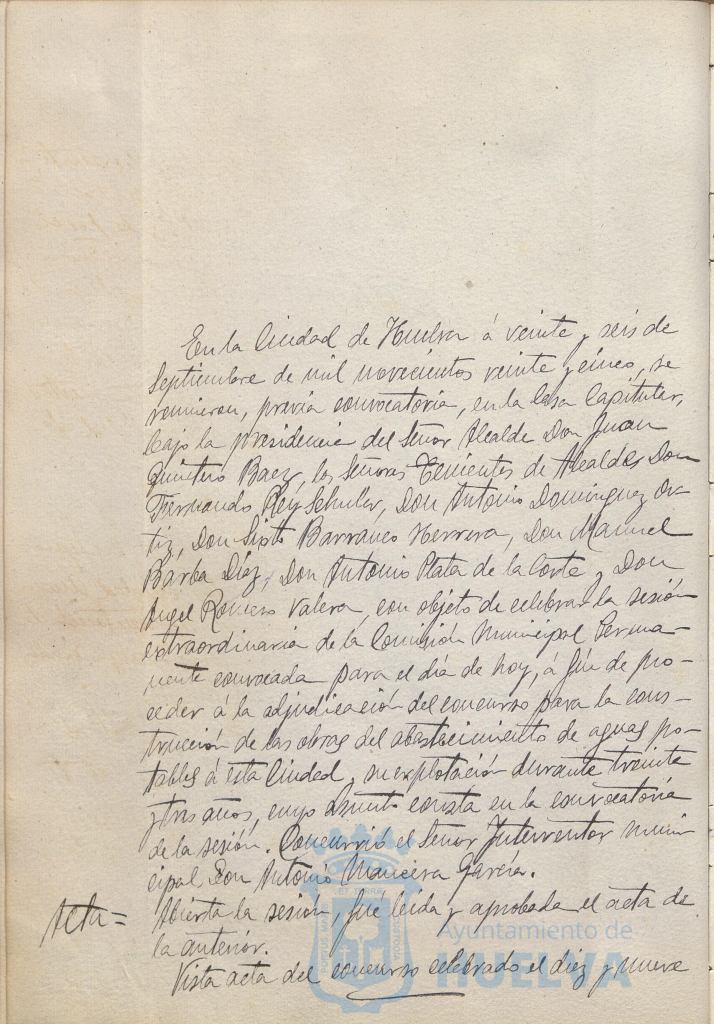 En la Ciudad de Huelva á veinte y seis de
Septiembre de mil novecientos veinte y cinco, se
reunieron, previa convocatoria, en la Casa Capitular,
bajo la presidencia del Señor Alcalde Don Juan
Quintero Baez, los Señores Tenientes de Alcaldes Don
Fernando Rey Schuller, Don Antonio Dominguez Or-
tiz, Don Sixto Barranco Herrera, Don Manuel
Barba Díaz, Don Antonio Plata de la Corte y Don
Angel Romero Valera, con objeto de celebrar la sesión
extraordinaria de la Comisión Municipal Perma-
nente convocada para el día de hoy, á fin de pro-
ceder á la adjudicación del concurso para la cons-
trucción de las obras del abastecimiento de aguas po-
tables á esta Ciudad y su explotación durante treinta
y tres años, cuyo asunto consta en la convocatoria
de la sesión. Concurrió el Señor Interventor muni-
cipal Don Antonio Mancera García.
Acta = Abierta la sesión, fué leida y aprobada el acta de
la anterior.
Vista acta del concurso celebrado el diez y nueve
Ayuntamiento de
HUELVA